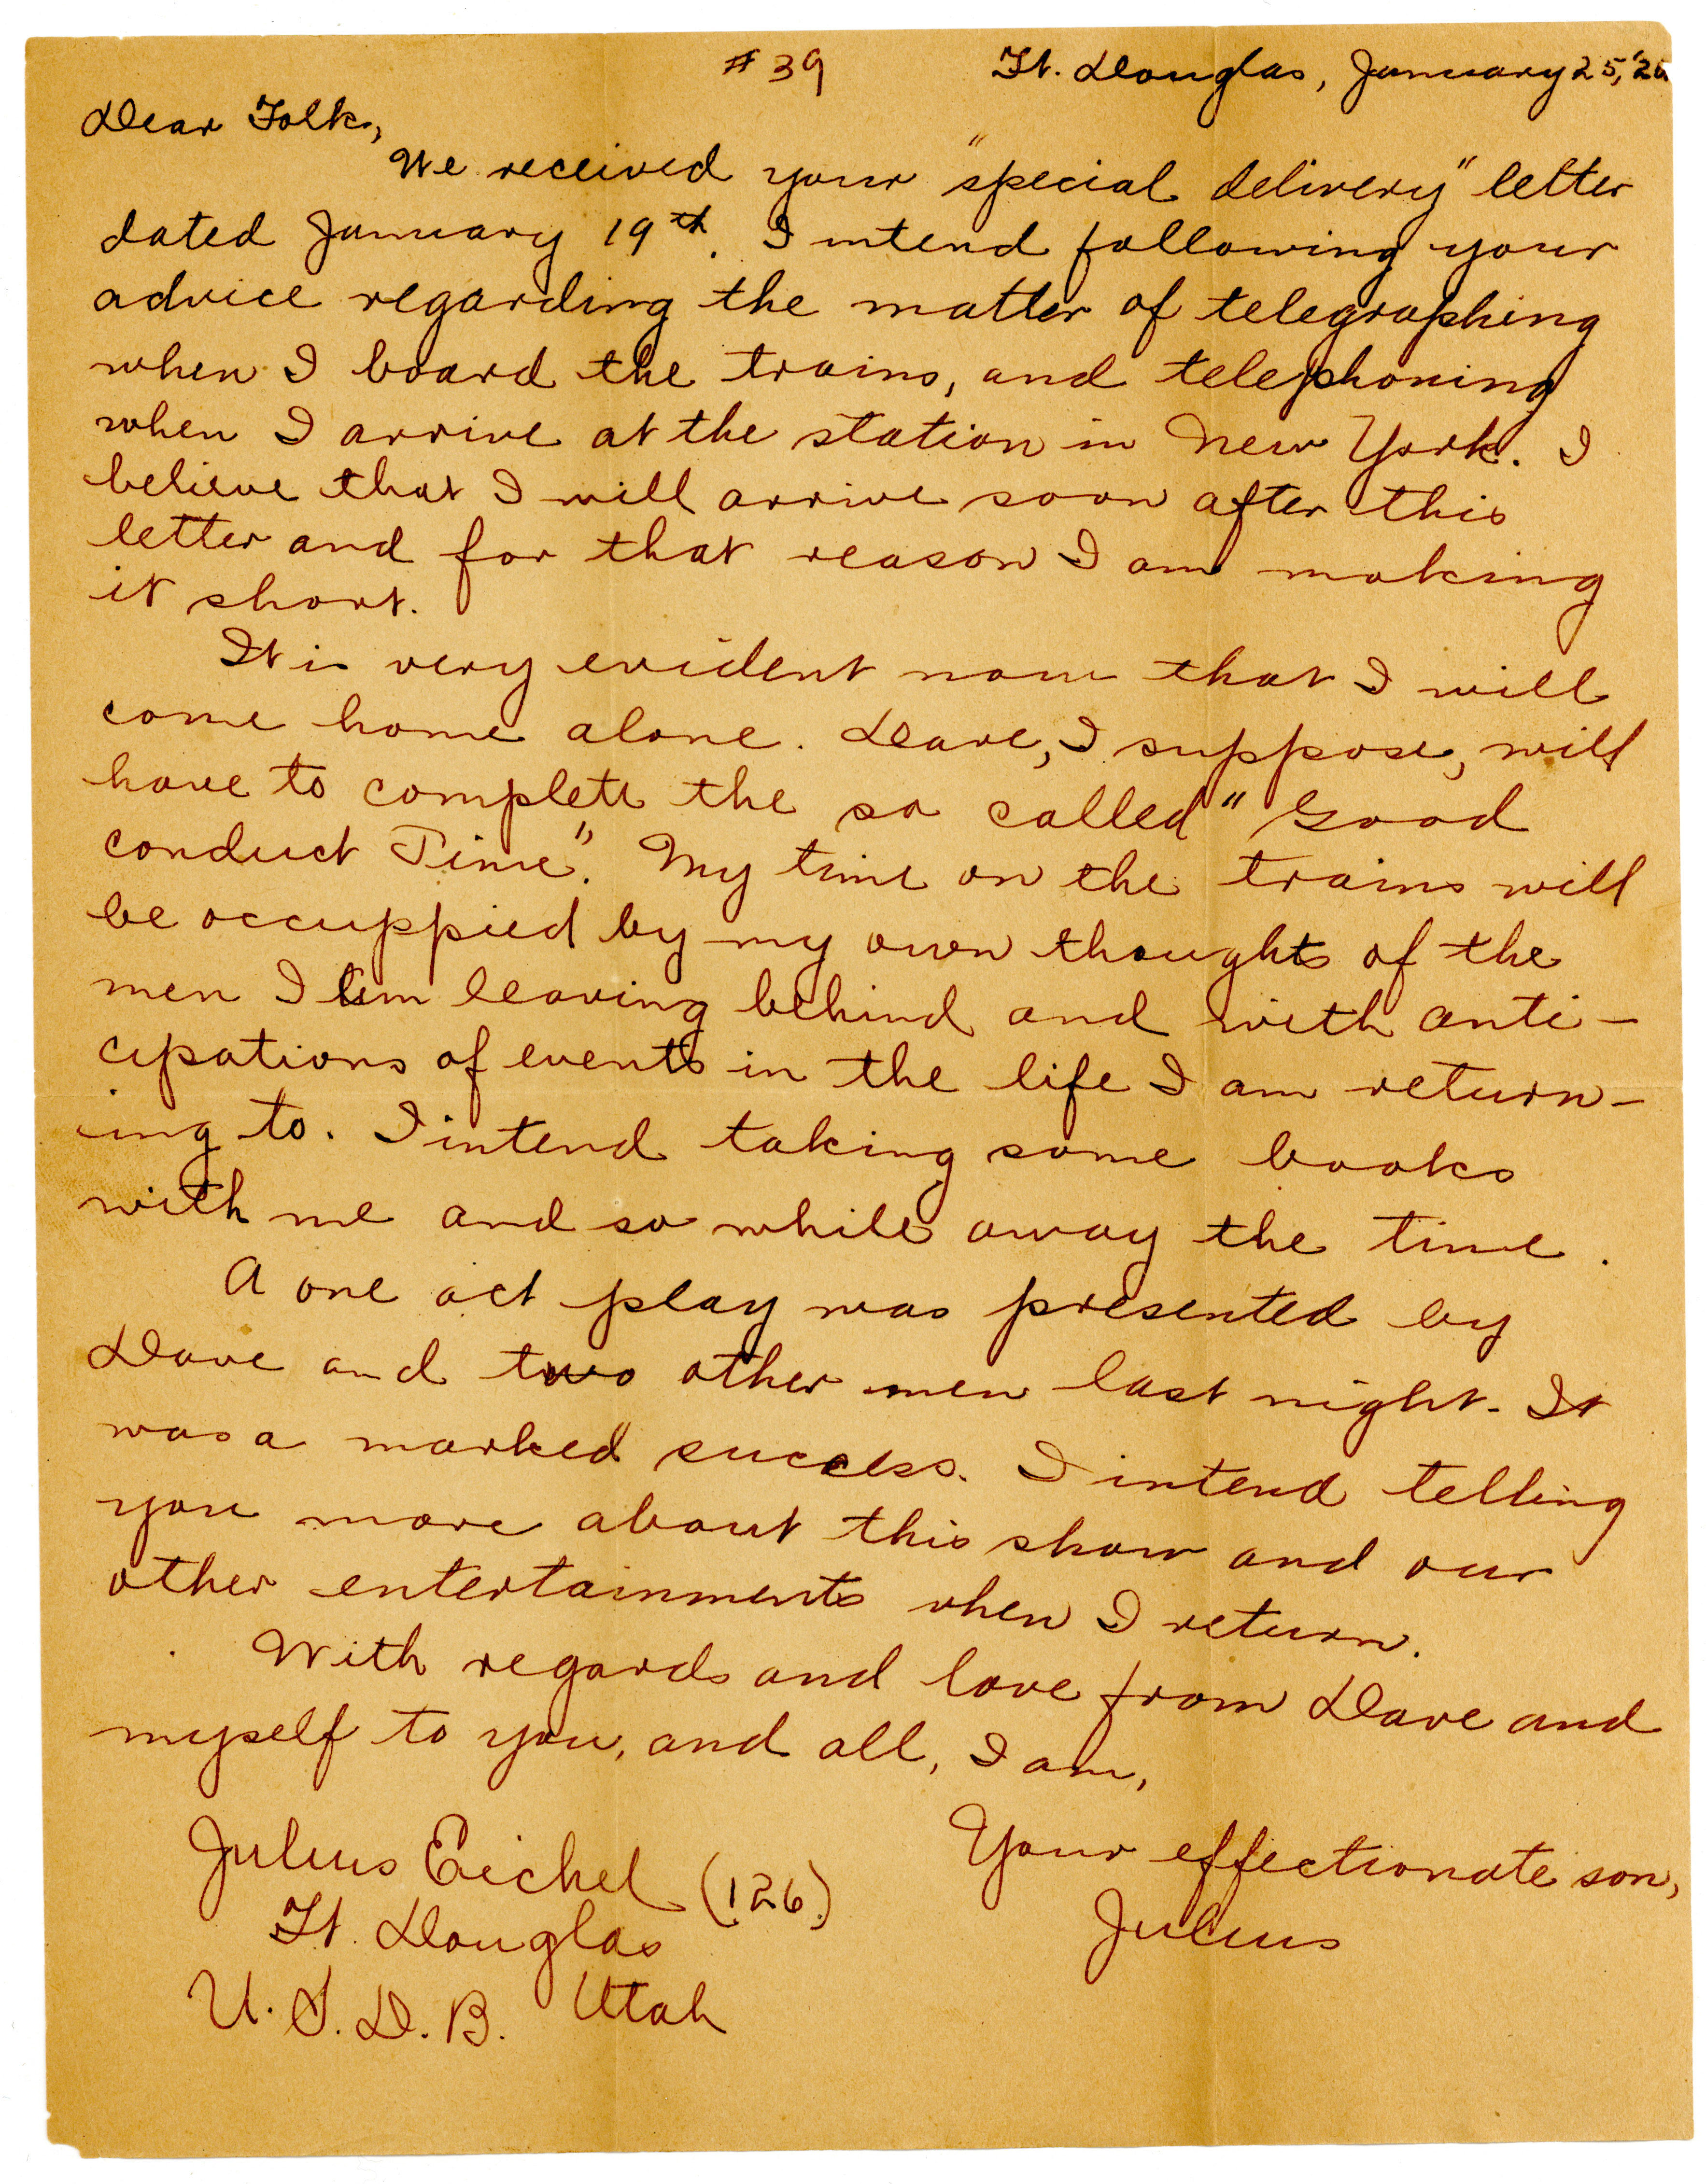 #39 Ft. Douglas, January 25, '20
Dear Folks,
We received your "special delivery" letter
dated January 19th. I intend following your
advice regarding the matter of telegraphing
when I board the trains, and telephoning
when I arrive at the station in New York. I
believe that I will arrive soon after this
letter and for that reason I am making
it short.
It is very evident now that I will
come home alone. Dave, I suppose, will
have to complete the so called "Good
conduct Time". My time on the trains will
be occuppied by my own thoughts of the
men I am leaving behind and with anti-
cipations of events in the life I am return-
ing to. I intend taking some books
with me and so while away the time.
A one act play was presented by
Dave and two other men last night. It
was a marked success. I intend telling
you more about this show and our
other entertainments when I return.
With regards and love from Dave and
myself to you, and all, I am,
Your effectionate son,
Julius
Julius Eichel (126)
Ft. Douglas
U.S.D.B. Utah